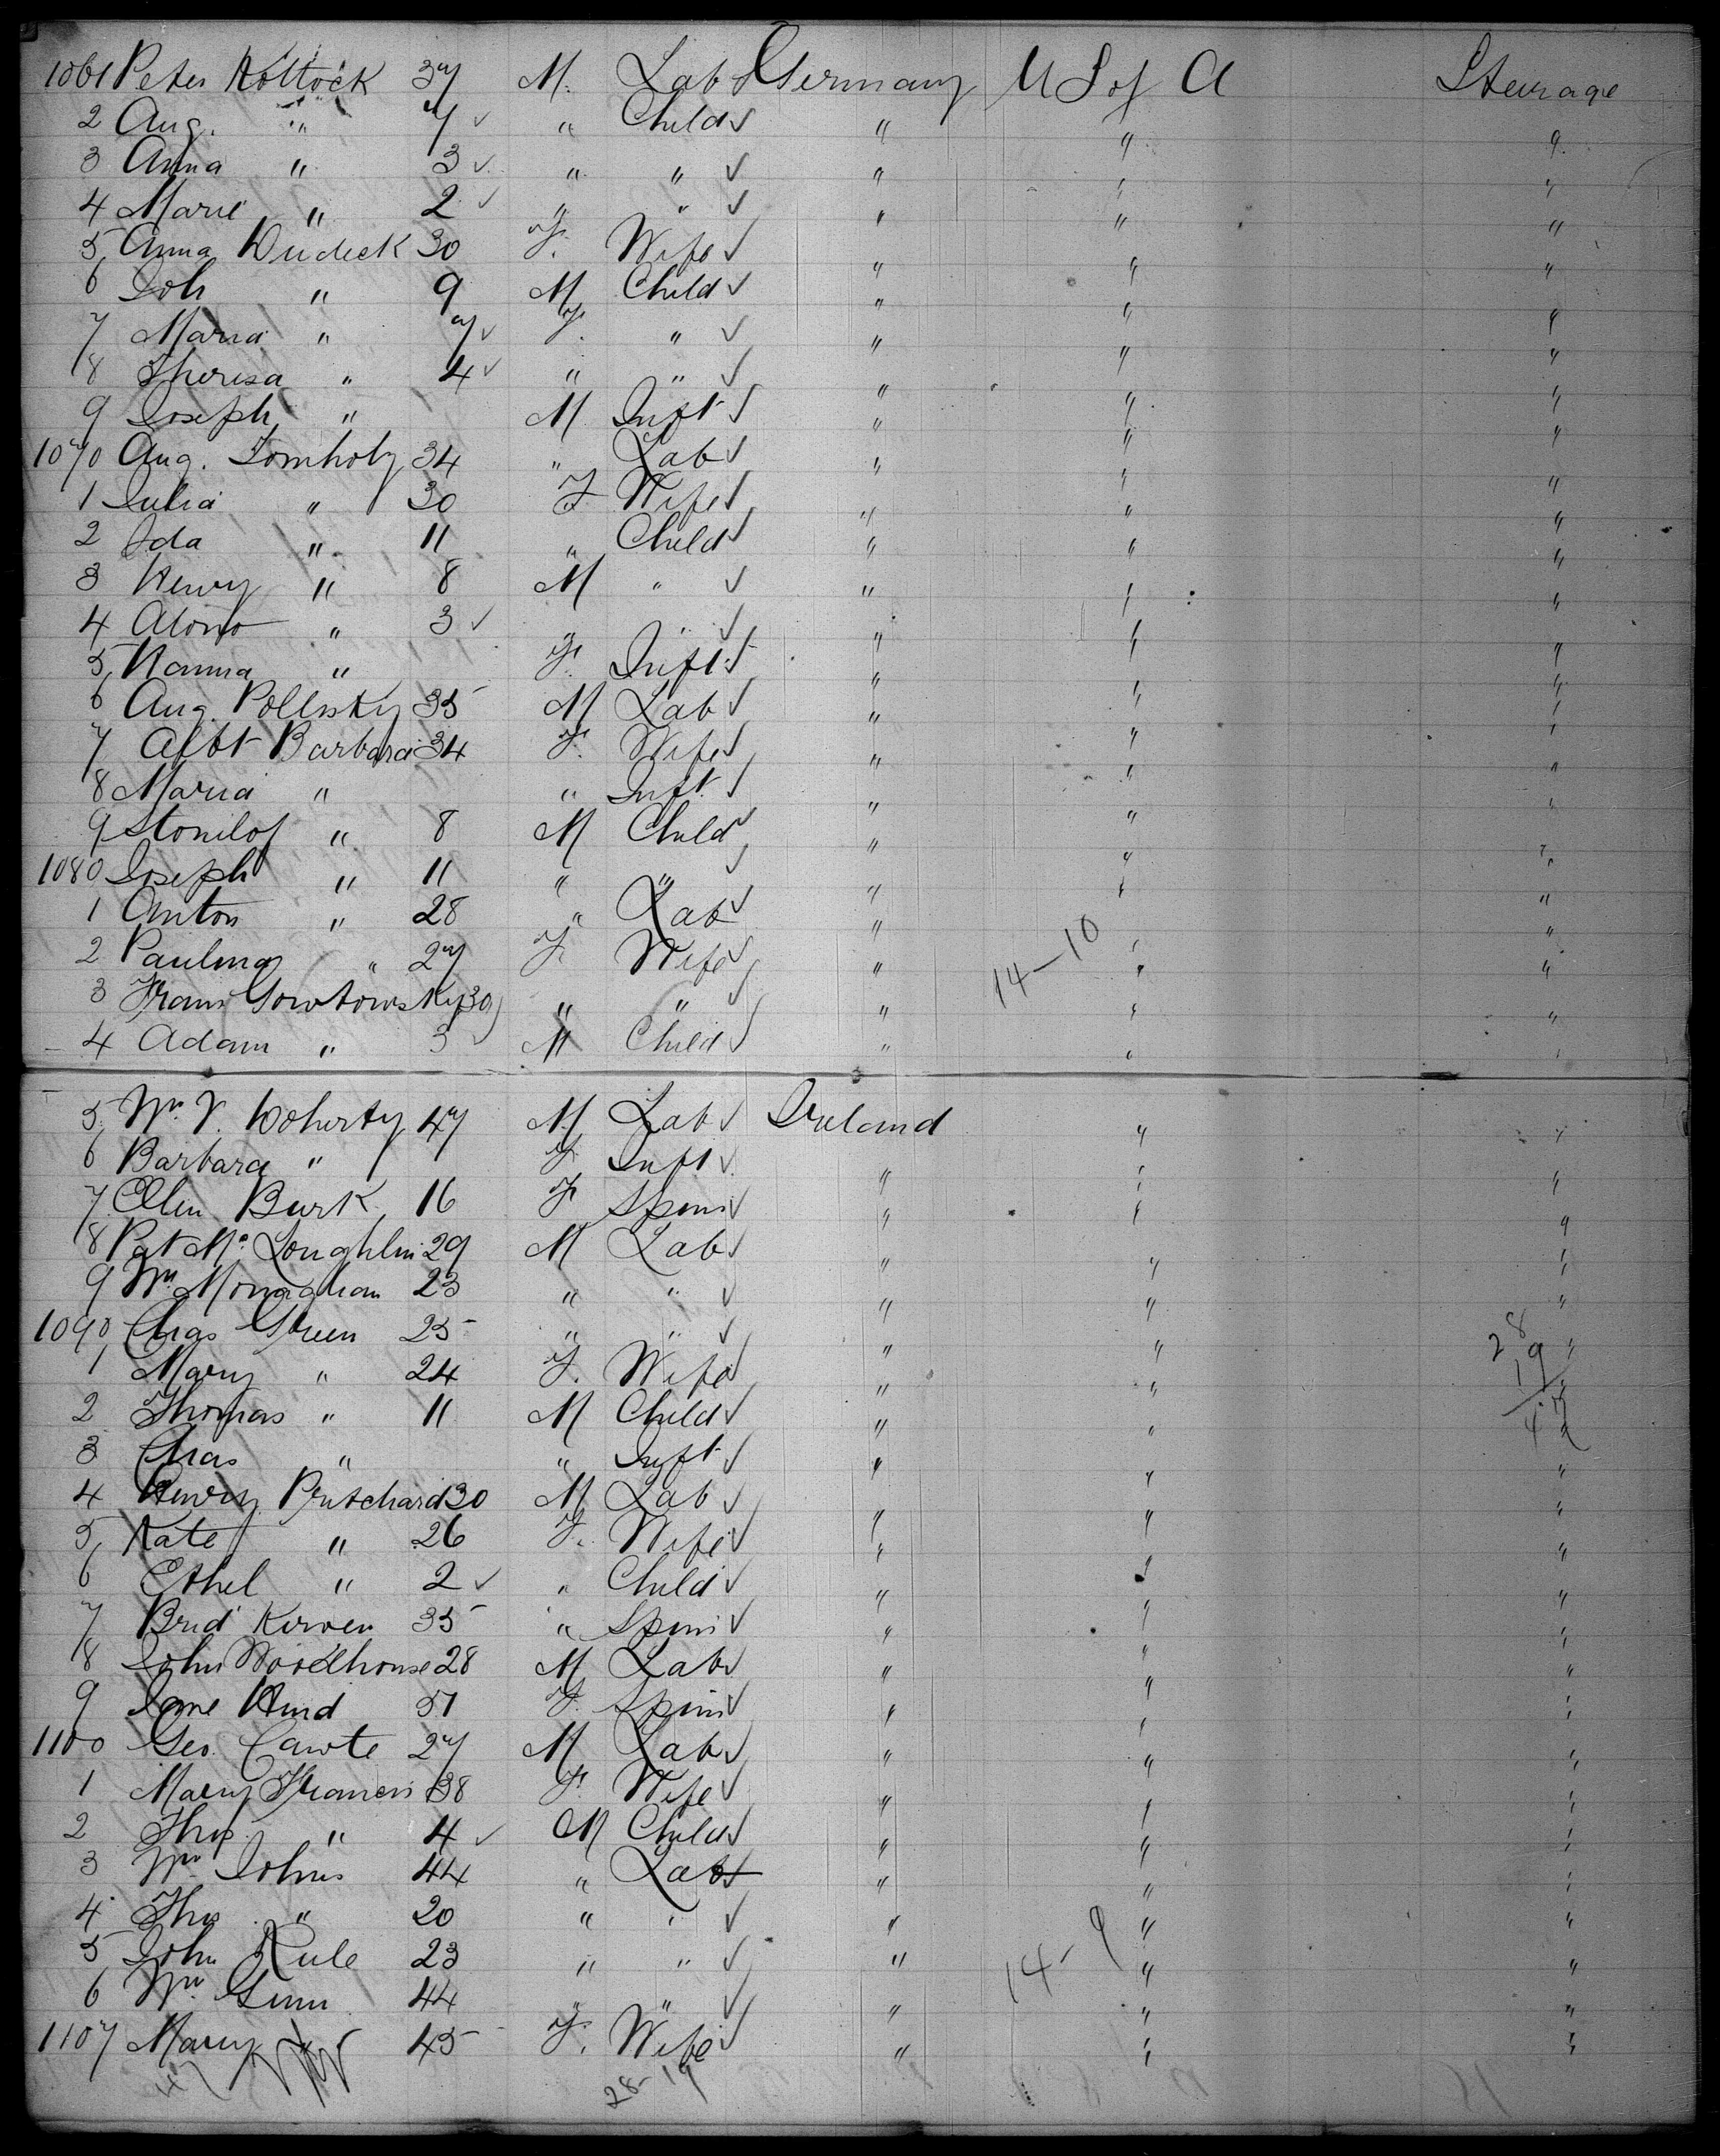 1061 Peter Kottock 37 M. Lab Germany U S of A Steerage
2 Aug. " 7 " Child " " "
3 Anna " 3 " " " " "
4 Marie " 2 " " " " "
5 Anna Dudeck 30 F. Wife " " "
6 Joh " 9 M Child " " "
7 Maria " 7 F. " " " "
8 Theresa " 4 " " " " "
9 Joseph " M Inft " " "
1070 Aug. 34 " Lab " " "
1 Julia " 30 F Wife " " "
2 Ida " 11 " Child " " "
3 Henry " 8 M " " " "
4 " 3 " " " "
5 Hanna " F. Inft " " "
6 Aug. Pollosky 35 M Lab " " "
7 Albt Barbara 34 F. Wife " " "
8 Maria " " Inft. " " "
9 Stonilof " 8 M Child " " "
1080 Joseph " 11 " " " " "
1 Anton " 28 " Lab " " "
2 Paulina " 27 F. Wife " " "
14-10
3 Frans 30 " " " " "
4 Adam " 3 M Child " " "
5 Wm. V. Doherty 47 M Lab Ireland " "
6 Barbara " F. Inft " " "
7 Ellen Burk 16 F Spins " " "
8 Pat Mc Loughlin 29 M Lab " " "
9 Wm. Monaghan 23 " " " " "
1090 Chas Green 25 " " " " "
28
1 Mary " 24 F. Wife " " "
19
2 Thomas " 11 M Child " " "
47
3 Chas " " Inft " " "
4 Henry Pritchard 30 M Lab " " "
5 Kate " 26 F. Wife " " "
6 Ethel " 2 " Child " " "
7 Brid Kirwen 35 " Spins " " "
8 John Woodhouse 28 M Lab " " "
9 Jane Hind 51 F. Spins " " "
1100 Geo. Cawte 27 M Lab " " "
1 Mary Francis 38 F. Wife " " "
2 Thos. " 4 M Child " " "
3 Wm Johns 44 " Lab " " "
4 Thos " 20 " " " " "
5 John Rule 23 " " " " "
14-9
6 Wm. Gunn 44 " " " " "
1107 Mary " 45 F. Wife " " "
47 28-19